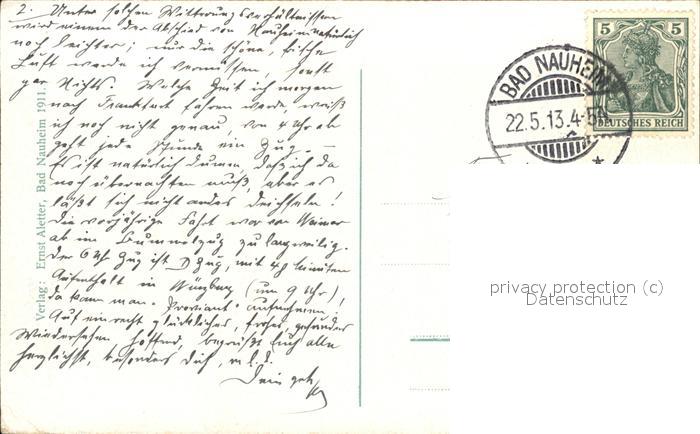 2. Unter solchen Witterungsverhältnissen
wird einem der Abschied von Nauheim natürlich
noch leichter; nur die schöne, frische
Luft werde ich vermissen, sonst
gar Nichts. Welche Zeit ich morgen
nach Frankfurt fahren werde, weiß
ich noch nicht genau, von 4 Uhr ab
geht jede Stunde ein Zug. –
Es ist natürlich dumm, daß ich da
noch übernachten muß, aber es
läßt sich nicht anders deichseln!
Die vorjährige Fahrt war von Weimar
ab im Bummelzug zu langweilig.
Der 6 Uhr Zug ist D Zug, mit 48 Minuten
Aufenthalt in Würzburg (um 9 Uhr),
da kann man "Proviant" aufnehmen.
Auf ein recht glückliches, frohes, gesundes
Wiedersehen hoffend, begrüßt Euch alle
herzlichst, besonders Dich, m. l.
Dein
Verlag: Ernst Aletter, Bad Nauheim 1911.
BAD NAUHEIM
22.5.13.4-5N
*
5 5
DEUTSCHES REICH
privacy protection (c)
Datenschutz